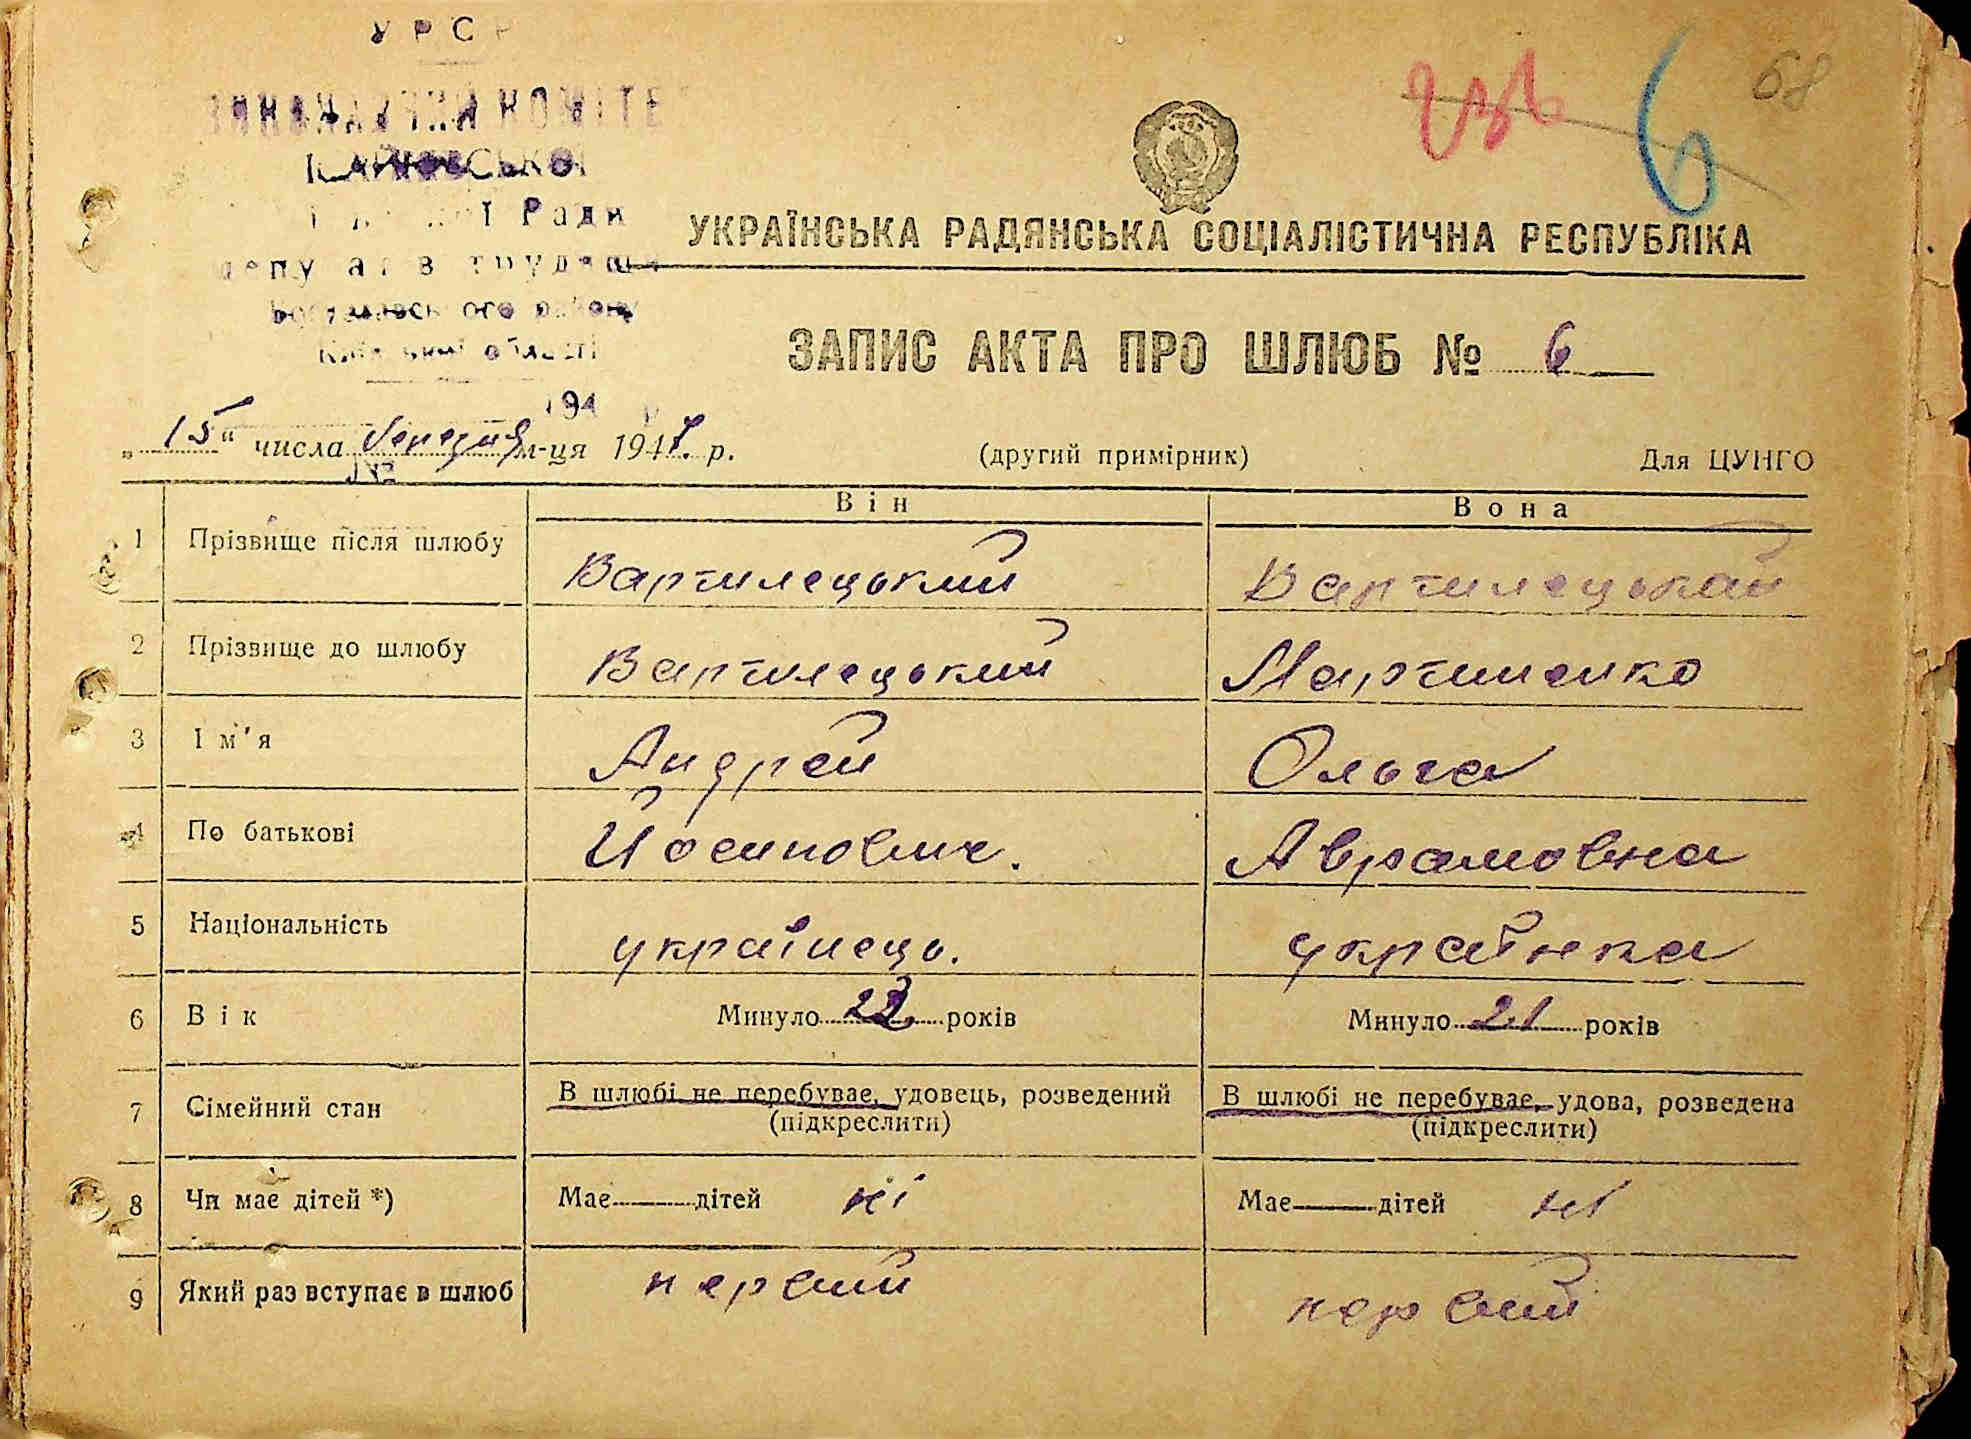 УРСР
ВИКОНАВЧИЙ КОМІТЕ
Ради
Київської області
194
68
6
УКРАЇНСЬКА РАДЯНСЬКА СОЦІАЛІСТИЧНА РЕСПУБЛІКА
ЗАПИС АКТА ПРО ШЛЮБ № 6
„15" числа березня м-ця 1947 р. (другий примірник) Для ЦУНГО
Він Вона
1 Прізвище після шлюбу Вартилецький Вартилецькай
2 Прізвище до шлюбу Вартилецький Мартиненко
3 Ім'я Андрей Ольга
4 По батькові Йосипович. Аврамовна
5 Національність українець. українка
6 Вік Минуло 22 років Минуло 21 років
7 Сімейний стан В шлюбі не перебуває, удовець, розведений В шлюбі не перебуває, удова, розведена
(підкреслити) (підкреслити)
8 Чи має дітей *) Має дітей ні Має дітей ні
9 Який раз вступає в шлюб первий первий